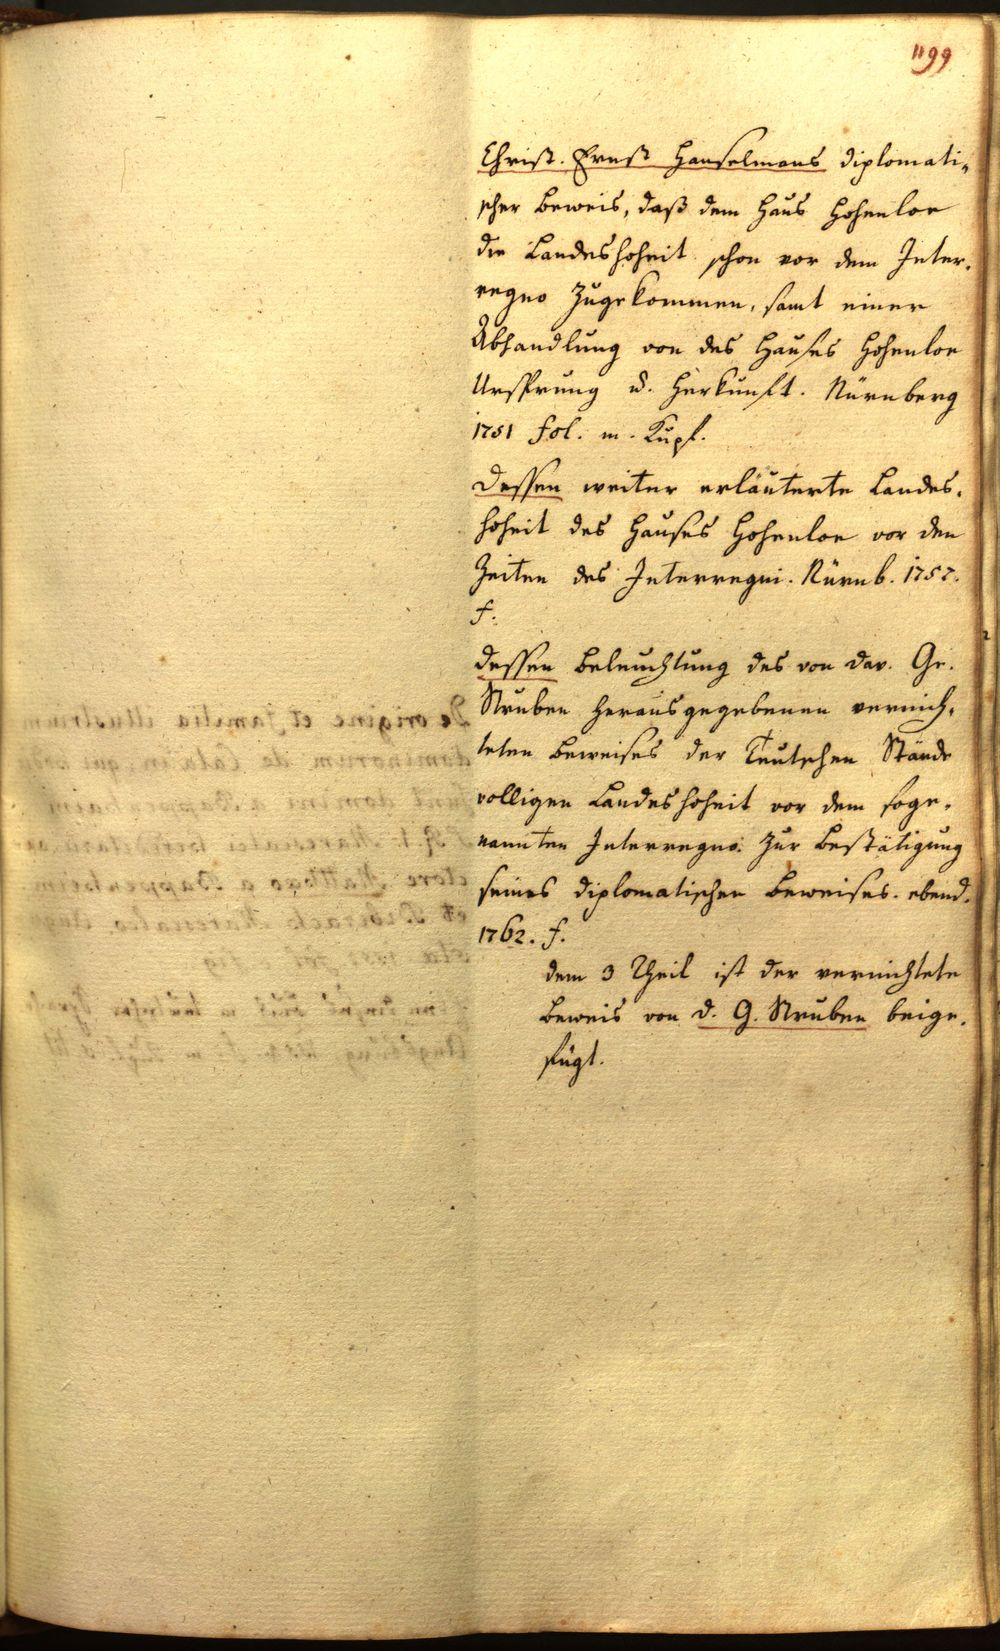 1199
Christ. Ernst Hanselmans diplomati-
scher Beweis, daß dem Haus Hohenloe
die Landeshoheit schon vor dem Inter-
regno zugekommen, samt einer
Abhandlung von des Hauses Hohenloe
Ursprung u. Herkunft. Nürnberg
1751 fol. m. Kupf.
Dessen weiter erläuterte Landes-
hoheit des Hauses Hohenloe vor den
Zeiten des Interregni. Nürnb. 1757.
f.
Dessen Beleuchtung des von Dav. Ge.
Struben herausgegebenen vernich-
teten Beweises der Teutschen Stände
volligen Landeshoheit vor dem soge-
nannten Interregno zur Bestätigung
seines diplomatischen Beweises. ebend.
1762. f.
dem 3 Theil ist der vernichtete
Beweis von D. G. Struben beige-
fügt.